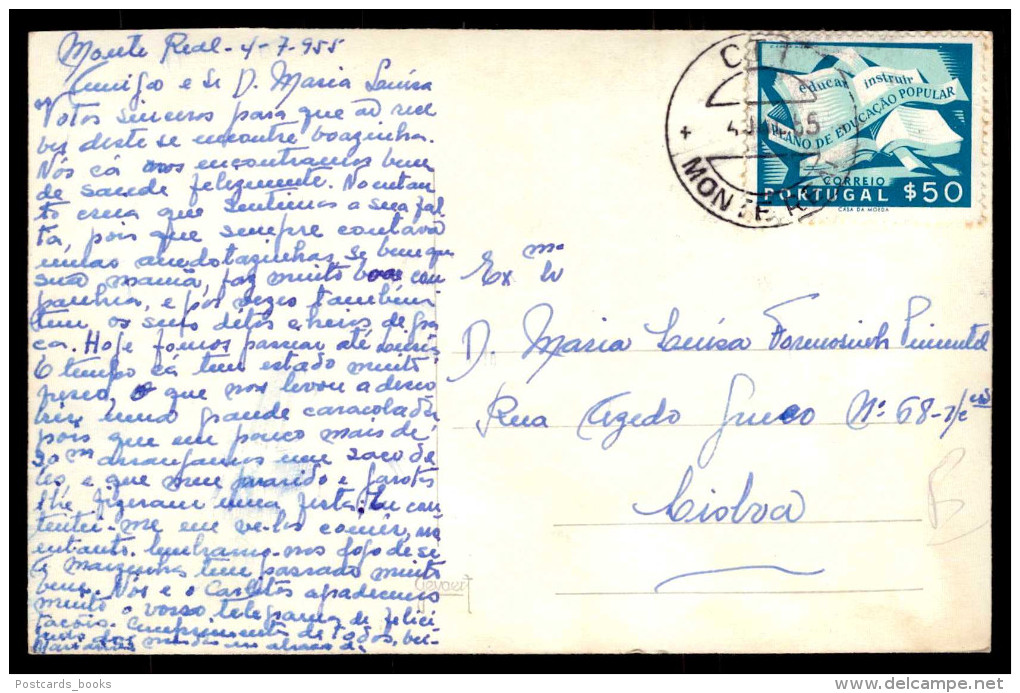 Monte Real - 4-7-955
Amiga e Sr D. Maria Luísa
Votos sinceros para que ao rece
ber deste se encontre boazinha.
Nós cá nos encontramos bem
de saude felizmente. No entan
to creia que sentimos a sua fal
ta, pois que sempre contava
umas anedotazinhas, se bem que
sua mamã, faz muito boa com
panhia, e por vezes também
tem os seus ditos cheios de gra
ça. Hoje fomos passear até
O tempo cá tem estado muito
fresco, o que nos levou a desco
brir uma grande caracolada
pois que em pouco mais de
30m arranjamos um saco de
les, e que meu marido e garotos
lhe fizeram uma festa, eu con
tentei-me em ve-los comer, no
entanto lembramo-nos logo de si
A mamã tem passado muito
bem. Nós e o Carlitos agradecemos
muito o vosso telegrama de felici
tações. Cumprimentos de todos, bei
CTT
4 JUL 55
+
MONTE REAL
educar instruir
PLANO DE EDUCAÇÃO POPULAR
CORREIO
PORTUGAL $50
CASA DA MOEDA
Exma
D. Maria Luísa Formosinho Pimentel
Rua Azedo Gneco Nº 68-r/c
Lisboa
Gevaert
B
Postcards_books
www.delcampe.net